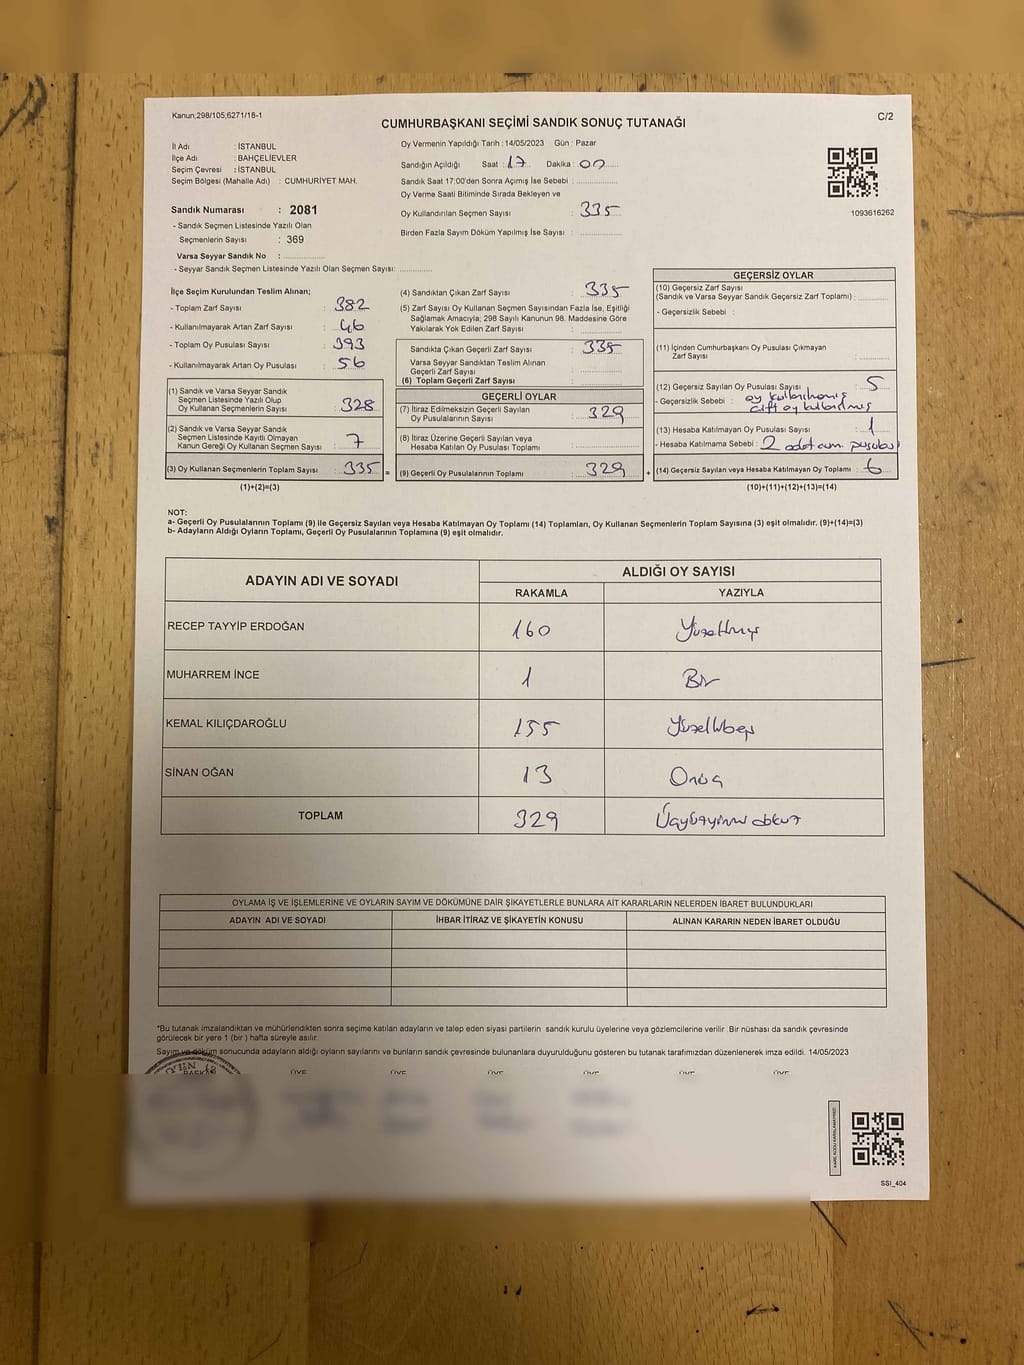 Kanun;298/105,6271/18-1
C/2
CUMHURBAŞKANI SEÇİMİ SANDIK SONUÇ TUTANAĞI
İl Adı : İSTANBUL
İlçe Adı : BAHÇELİEVLER
Seçim Çevresi : İSTANBUL
Seçim Bölgesi (Mahalle Adı) : CUMHURİYET MAH.
Oy Vermenin Yapıldığı Tarih : 14/05/2023 Gün : Pazar
Sandığın Açıldığı Saat : 17 Dakika : 00
Sandık Saat 17:00'den Sonra Açımış İse Sebebi :
Oy Verme Saati Bitiminde Sırada Bekleyen ve
Oy Kullandırılan Seçmen Sayısı : 335
Birden Fazla Sayım Döküm Yapılmış İse Sayısı :
1093616262
Sandık Numarası : 2081
- Sandık Seçmen Listesinde Yazılı Olan
Seçmenlerin Sayısı : 369
Varsa Seyyar Sandık No :
- Seyyar Sandık Seçmen Listesinde Yazılı Olan Seçmen Sayısı:
İlçe Seçim Kurulundan Teslim Alınan;
- Toplam Zarf Sayısı : 382
- Kullanılmayarak Artan Zarf Sayısı : 46
- Toplam Oy Pusulası Sayısı : 393
- Kullanılmayarak Artan Oy Pusulası : 56
(1) Sandık ve Varsa Seyyar Sandık
Seçmen Listesinde Yazılı Olup
Oy Kullanan Seçmenlerin Sayısı : 328
(2) Sandık ve Varsa Seyyar Sandık
Seçmen Listesinde Kayıtlı Olmayan
Kanun Gereği Oy Kullanan Seçmen Sayısı : 7
(3) Oy Kullanan Seçmenlerin Toplam Sayısı : 335 =
(1)+(2)=(3)
(4) Sandıktan Çıkan Zarf Sayısı : 335
(5) Zarf Sayısı Oy Kullanan Seçmen Sayısından Fazla İse, Eşitliği
Sağlamak Amacıyla; 298 Sayılı Kanunun 98. Maddesine Göre
Yakılarak Yok Edilen Zarf Sayısı :
Sandıkta Çıkan Geçerli Zarf Sayısı : 335
Varsa Seyyar Sandıktan Teslim Alınan
Geçerli Zarf Sayısı :
(6) Toplam Geçerli Zarf Sayısı :
GEÇERLİ OYLAR
(7) İtiraz Edilmeksizin Geçerli Sayılan
Oy Pusulalarının Sayısı : 329
(8) İtiraz Üzerine Geçerli Sayılan veya
Hesaba Katılan Oy Pusulası Toplamı :
(9) Geçerli Oy Pusulalarının Toplamı : 329 +
GEÇERSİZ OYLAR
(10) Geçersiz Zarf Sayısı
(Sandık ve Varsa Seyyar Sandık Geçersiz Zarf Toplamı) :
- Geçersizlik Sebebi :
(11) İçinden Cumhurbaşkanı Oy Pusulası Çıkmayan
Zarf Sayısı :
(12) Geçersiz Sayılan Oy Pusulası Sayısı : 5
- Geçersizlik Sebebi : oy kullanılmamış
çift oy kullanılmış
(13) Hesaba Katılmayan Oy Pusulası Sayısı : 1
- Hesaba Katılmama Sebebi : 2 adet cum. pusulası
(14) Geçersiz Sayılan veya Hesaba Katılmayan Oy Toplamı : 6
(10)+(11)+(12)+(13)=(14)
NOT:
a- Geçerli Oy Pusulalarının Toplamı (9) ile Geçersiz Sayılan veya Hesaba Katılmayan Oy Toplamı (14) Toplamları, Oy Kullanan Seçmenlerin Toplam Sayısına (3) eşit olmalıdır. (9)+(14)=(3)
b- Adayların Aldığı Oyların Toplamı, Geçerli Oy Pusulalarının Toplamına (9) eşit olmalıdır.
ADAYIN ADI VE SOYADI
ALDIĞI OY SAYISI
RAKAMLA YAZIYLA
RECEP TAYYİP ERDOĞAN 160 Yüzaltmış
MUHARREM İNCE 1 Bir
KEMAL KILIÇDAROĞLU 155 Yüzellibeş
SİNAN OĞAN 13 Onüç
TOPLAM 329 Üçyüzyirmi dokuz
OYLAMA İŞ VE İŞLEMLERİNE VE OYLARIN SAYIM VE DÖKÜMÜNE DAİR ŞİKAYETLERLE BUNLARA AİT KARARLARIN NELERDEN İBARET BULUNDUKLARI
ADAYIN ADI VE SOYADI İHBAR İTİRAZ VE ŞİKAYETİN KONUSU ALINAN KARARIN NEDEN İBARET OLDUĞU
*Bu tutanak imzalandıktan ve mühürlendikten sonra seçime katılan adayların ve talep eden siyasi partilerin sandık kurulu üyelerine veya gözlemcilerine verilir. Bir nüshası da sandık çevresinde
görülecek bir yere 1 (bir ) hafta süreyle asılır.
Sayım ve döküm sonucunda adayların aldığı oyların sayılarını ve bunların sandık çevresinde bulunanlara duyurulduğunu gösteren bu tutanak tarafımızdan düzenlenerek imza edildi. 14/05/2023
ÜYE ÜYE ÜYE ÜYE ÜYE ÜYE
SSI_404